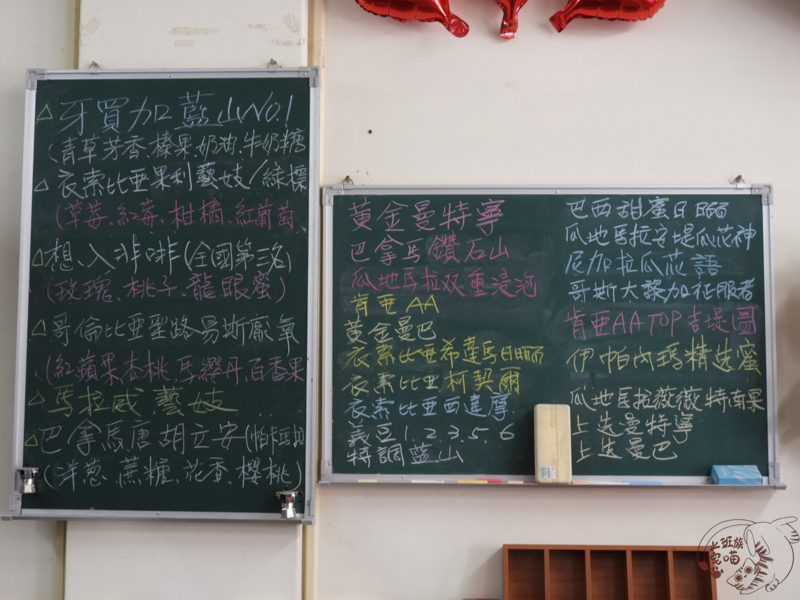 △牙買加藍山No.1
(青草芳香、榛果、奶油、牛奶糖
△衣索比亞果利藝妓/綠標
(草莓、紅莓、柑橘、紅葡萄、
△想、入非啡(全國第三名)
(玫瑰、桃子、龍眼蜜)
△哥倫比亞聖路易斯厭氧
(紅蘋果、杏桃、馬纓丹、百香果
△馬拉威藝妓
△巴拿馬唐胡立安(帕卡瑪拉
(洋蔥、蔗糖、花香、櫻桃)
黃金曼特寧
巴拿馬鑽石山
瓜地馬拉双重浸泡
肯亞AA
黃金曼巴
衣索比亞希達馬日晒
衣索比亞柯契爾
衣索比亞西達摩
義豆1.2.3.5.6
特調藍山
巴西甜蜜日晒
瓜地馬拉安堤瓜花神
尼加拉瓜花語
哥斯大黎加征服者
肯亞AA TOP 吉堤圖
伊帕內瑪精選蜜
瓜地馬拉薇薇特南果
上选曼特寧
上选曼巴
上班族
完勝
喵